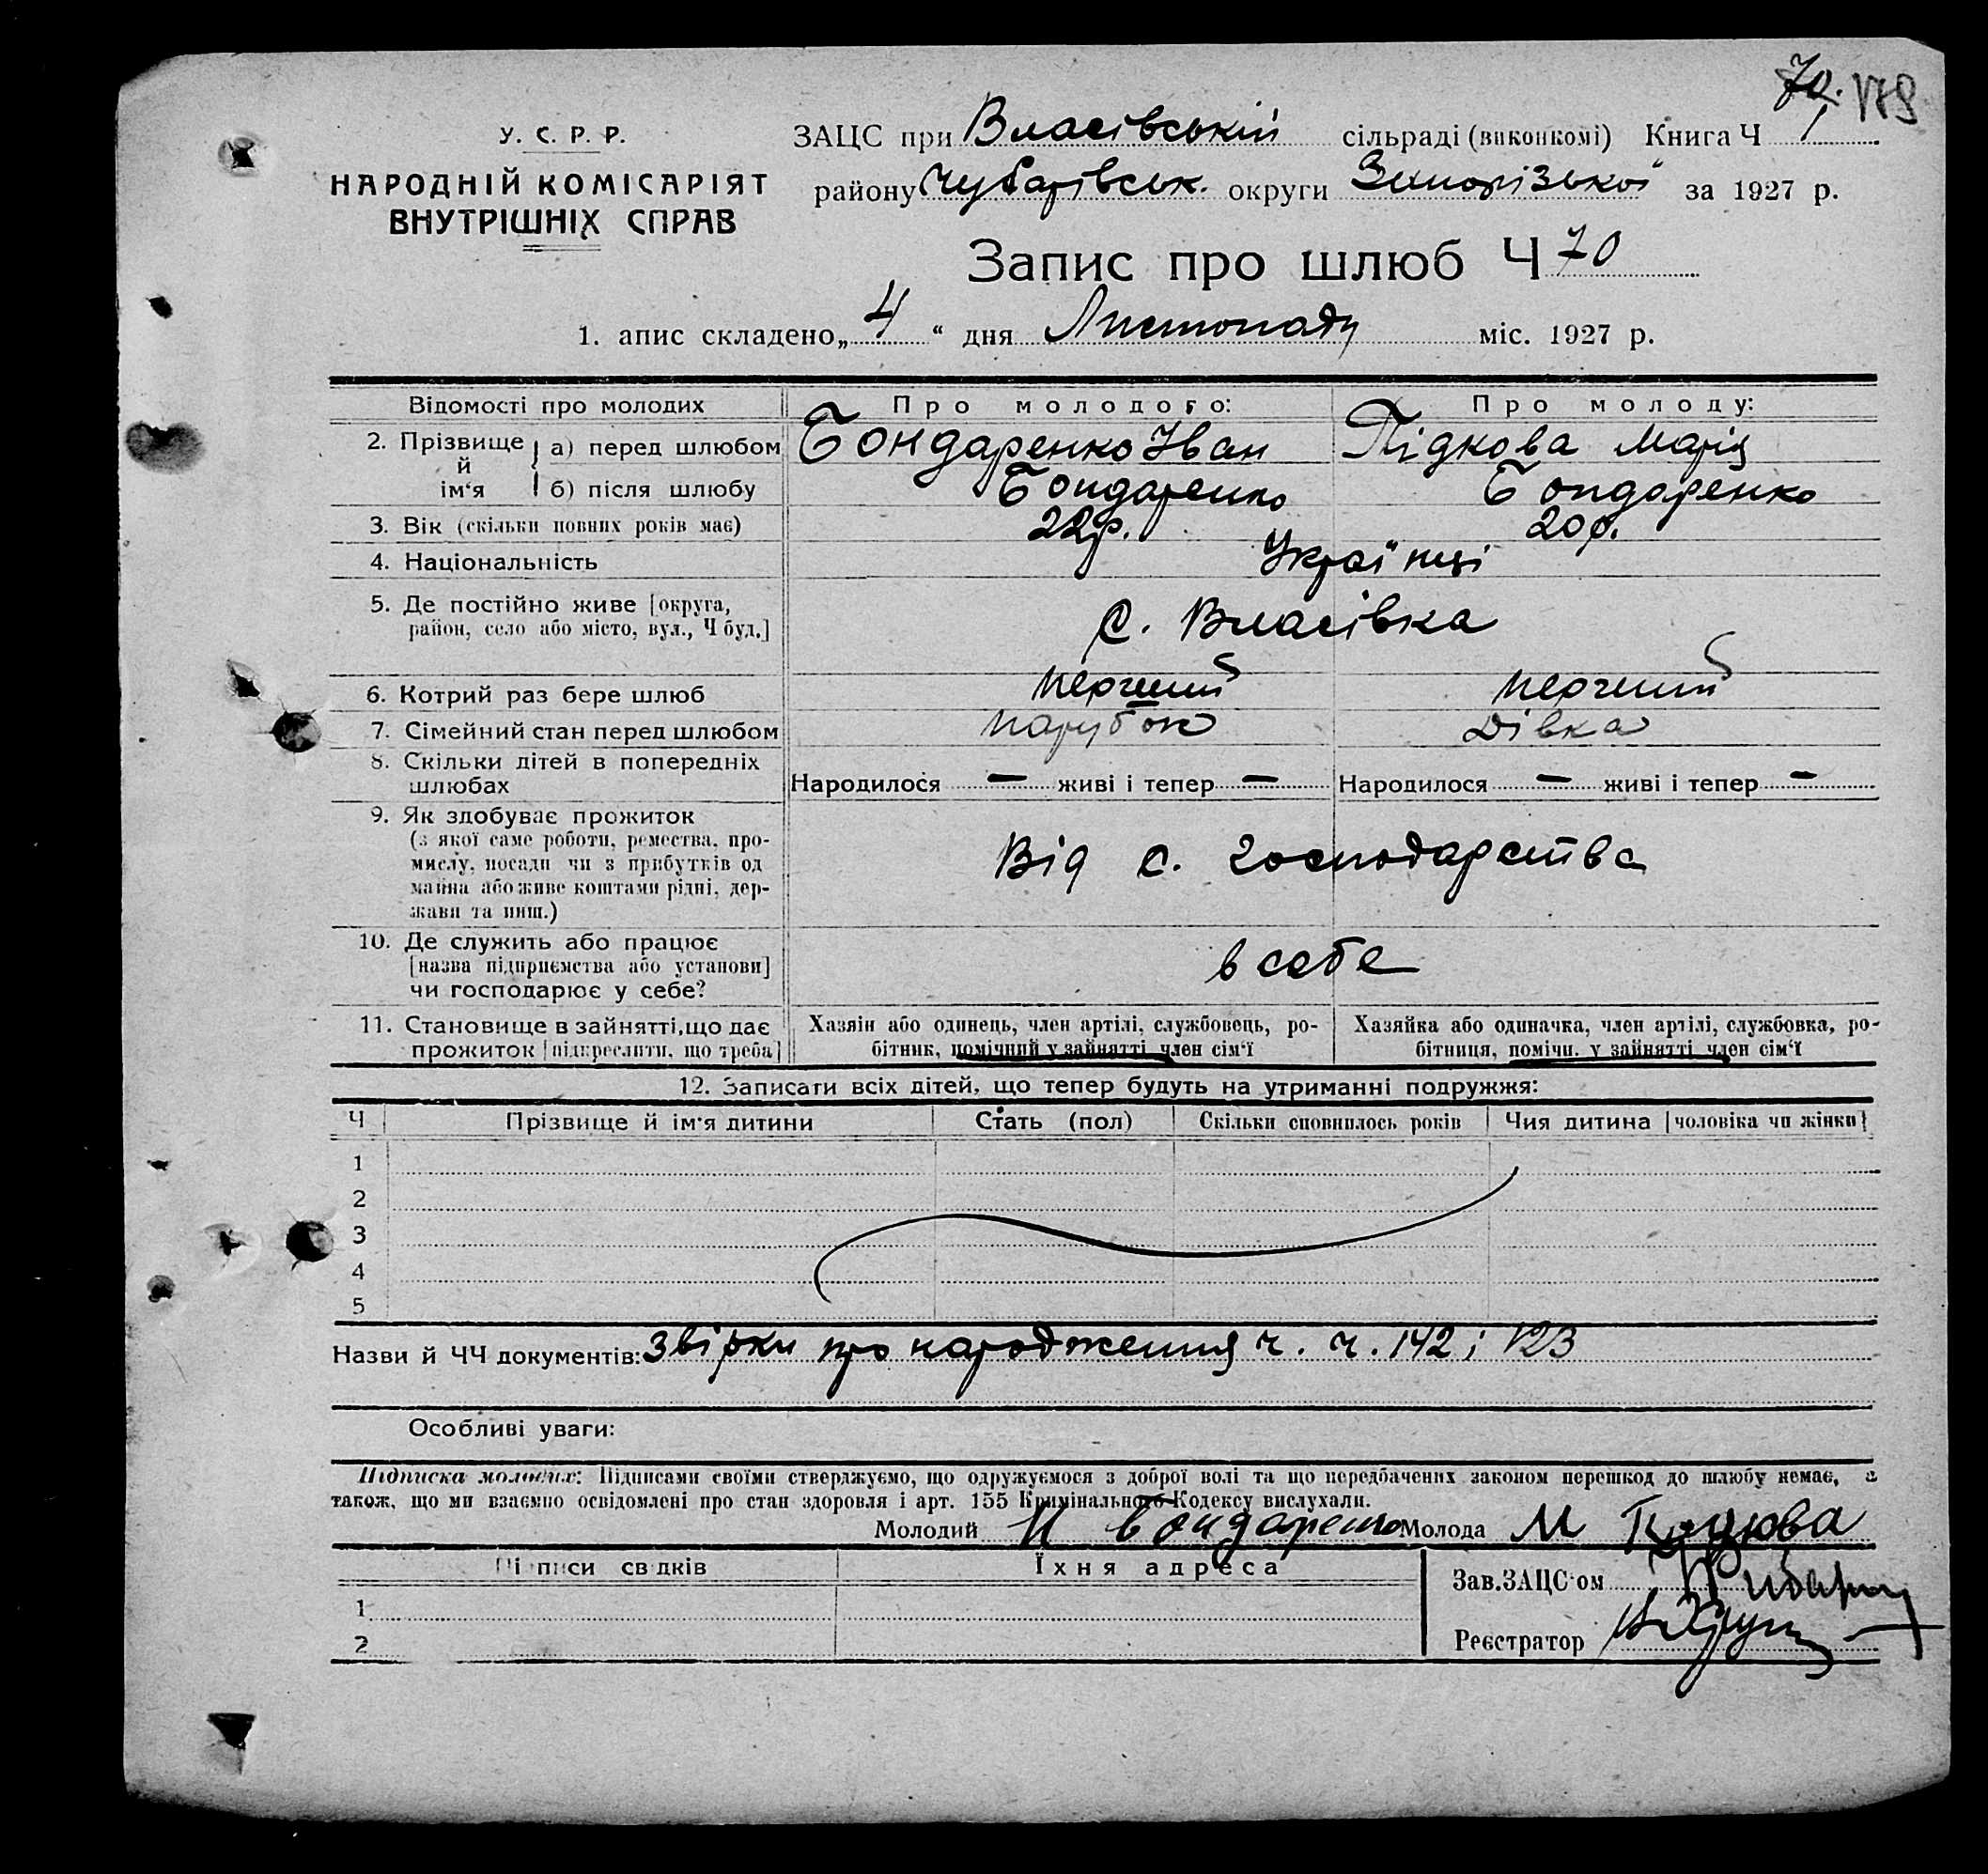 70. 179
У. С. Р. Р.
НАРОДНІЙ КОМІСАРІЯТ
ВНУТРІШНІХ СПРАВ
ЗАЦС при Власівській сільраді (виконкомі) Книга Ч 1
району Чубарівськ. округи Запорізької за 1927 р.
Запис про шлюб Ч 70
1. апис складено „ 4 “ дня Листопаду міс. 1927 р.
Відомості про молодих Про молодого: Про молоду:
2. Прізвище й ім‘я а) перед шлюбом Бондаренко Іван Підкова Марія
б) після шлюбу Бондаренко Бондаренко
3. Вік (скільки повних років має) 22р. 20р.
4. Національність Українці
5. Де постійно живе [округа,
район, село або місто, вул., Ч буд.] С. Власівка
6. Котрий раз бере шлюб перший перший
7. Сімейний стан перед шлюбом парубок дівка
8. Скільки дітей в попередніх
шлюбах Народилося — живі і тепер — Народилося — живі і тепер —
9. Як здобуває прожиток
(з якої саме роботи, ремества, про-
мислу, посади чи з прибутків од
майна або живе коштами рідні, дер-
жави та инш.) Від с. господарства
10. Де служить або працює
[назва підприємства або установи]
чи господарює у себе? в себе
11. Становище в зайнятті, що дає
прожиток [підкреслити, що треба]
Хазяін або одинець, член артілі, службовець, ро-
бітник, помічний у зайнятті член сім‘ї
Хазяйка або одиначка, член артілі, службовка, ро-
бітниця, помічн. у зайнятті член сім‘ї
12. Записати всіх дітей, що тепер будуть на утриманні подружжя:
Ч Прізвище й ім‘я дитини Стать (пол) Скільки сповнилось років Чия дитина [чоловіка чи жінки]
1
2
3
4
5
Назви й ЧЧ документів: звірки про народження ч. ч. 142 і 123
Особливі уваги:
Підписка молодих: Підписами своїми стверджуємо, що одружуємося з доброї волі та що передбачених законом перешкод до шлюбу немає, а
також, що ми взаємно освідомлені про стан здоровля і арт. 155 Кримінального Кодексу вислухали.
Молодий И Бондаренко Молода М
Пі писи св дків Їхня адреса
Зав. ЗАЦС‘ом
1
2
Реєстратор